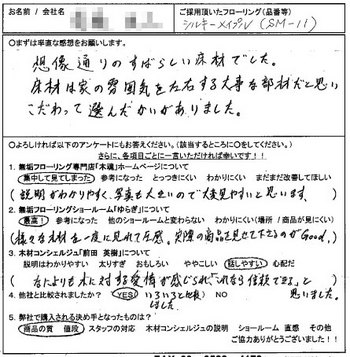 お名前 / 会社名
ご採用頂いたフローリング(品番等)
シルキーメイプル (SM-11)
○まずは率直な感想をお願いします。
想像通りのすばらしい床材でした。
床材は家の雰囲気を左右する大事な部材だと思い
こだわって選んだかいがありました。
○よろしければ以下のアンケートにもお答えください。(該当するところに○をしてください。)
さらに、各項目ごとに一言いただければ幸いです!!
1. 無垢フローリング専門店「木魂」ホームページについて
集中して見てしまった 参考になった とっつきにくい わかりにくい まだまだ改善してほしい
(説明がわかりやすく、写真も大きいので大変見やすいと思います。)
2. 無垢フローリングショールーム「ゆらぎ」について
最高! 参考になった 他のショールームと変わらない わかりにくい(場所 / 商品が見にくい)
(様々な木材を一度に見れて圧感。実際の商品を見せて下さるのがGood.)
3. 木材コンシェルジュ「前田 英樹」について
説明はわかりやすい 太りすぎ おもしろい ややこしい 話しやすい 心配だ
(なによりも木に対する愛情が感じられ「これなら信頼できる」と
思いました。)
4. 他社と比較されましたか? YES! いろいろと比較しました。 NO
5. 弊社で購入される決め手となったものは?
商品の質 値段 スタッフの対応 木材コンシェルジュの説明 ショールーム 直感 その他
ご協力ありがとうございました!